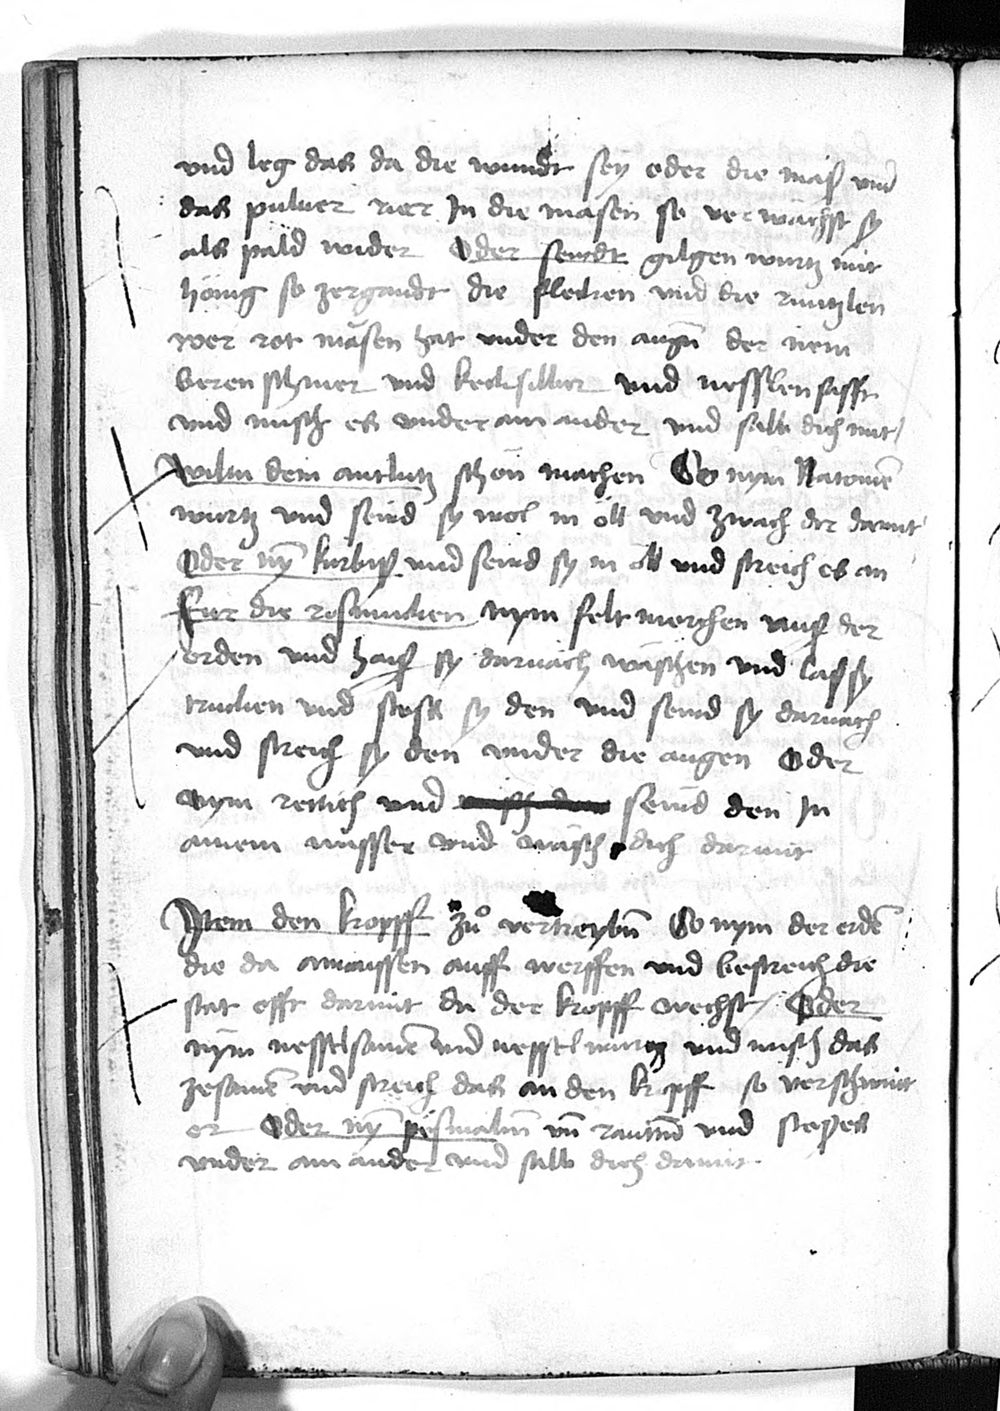 vnd leg das da die wundt sey oder die maß vnd
das puluer rier In die masen so ver wachst sy
als pald wider Oder seudt gilgen wurtz mit
hönig so zergandt die flecken vnd die runtzlen
wer rot masen hat vnder den augn̄ der nem
beren schmer vnd kecksilber vnd nesslen safft
vnd misch es vnder ain ander vnd salb dich mit
wiltu dein antlutz schön machen So nym Natowē
wurtz vnd seud sy wol in öll vnd zwach dir darmit
Oder nȳ kurbiß vnd seud sy in öll vnd streich es an
Fur die rosmucken nym felt morchen auß der
erden vnd haiß sy darnach wäschen vnd laß sy
trucken vnd stoß sy den vnd seud sy darnach
vnd streich sy den vnder die augen Oder
Nym rettich vnd seud den In
ainem wasser vnd wäsch dich darmit
Item den kropff zů vertreybn̄ So nym der erdē
die da amaussen auff werffen vnd bestreich die
stat offt darmit da der kropff wechst / Oder
nym nesselsamē vnd nesstel wurtz vnd misch das
zesamē vnd streich das an den kropff so verschwint
er Oder nȳ vn̄ vnd
vnder ain ander vnd salb dich damit